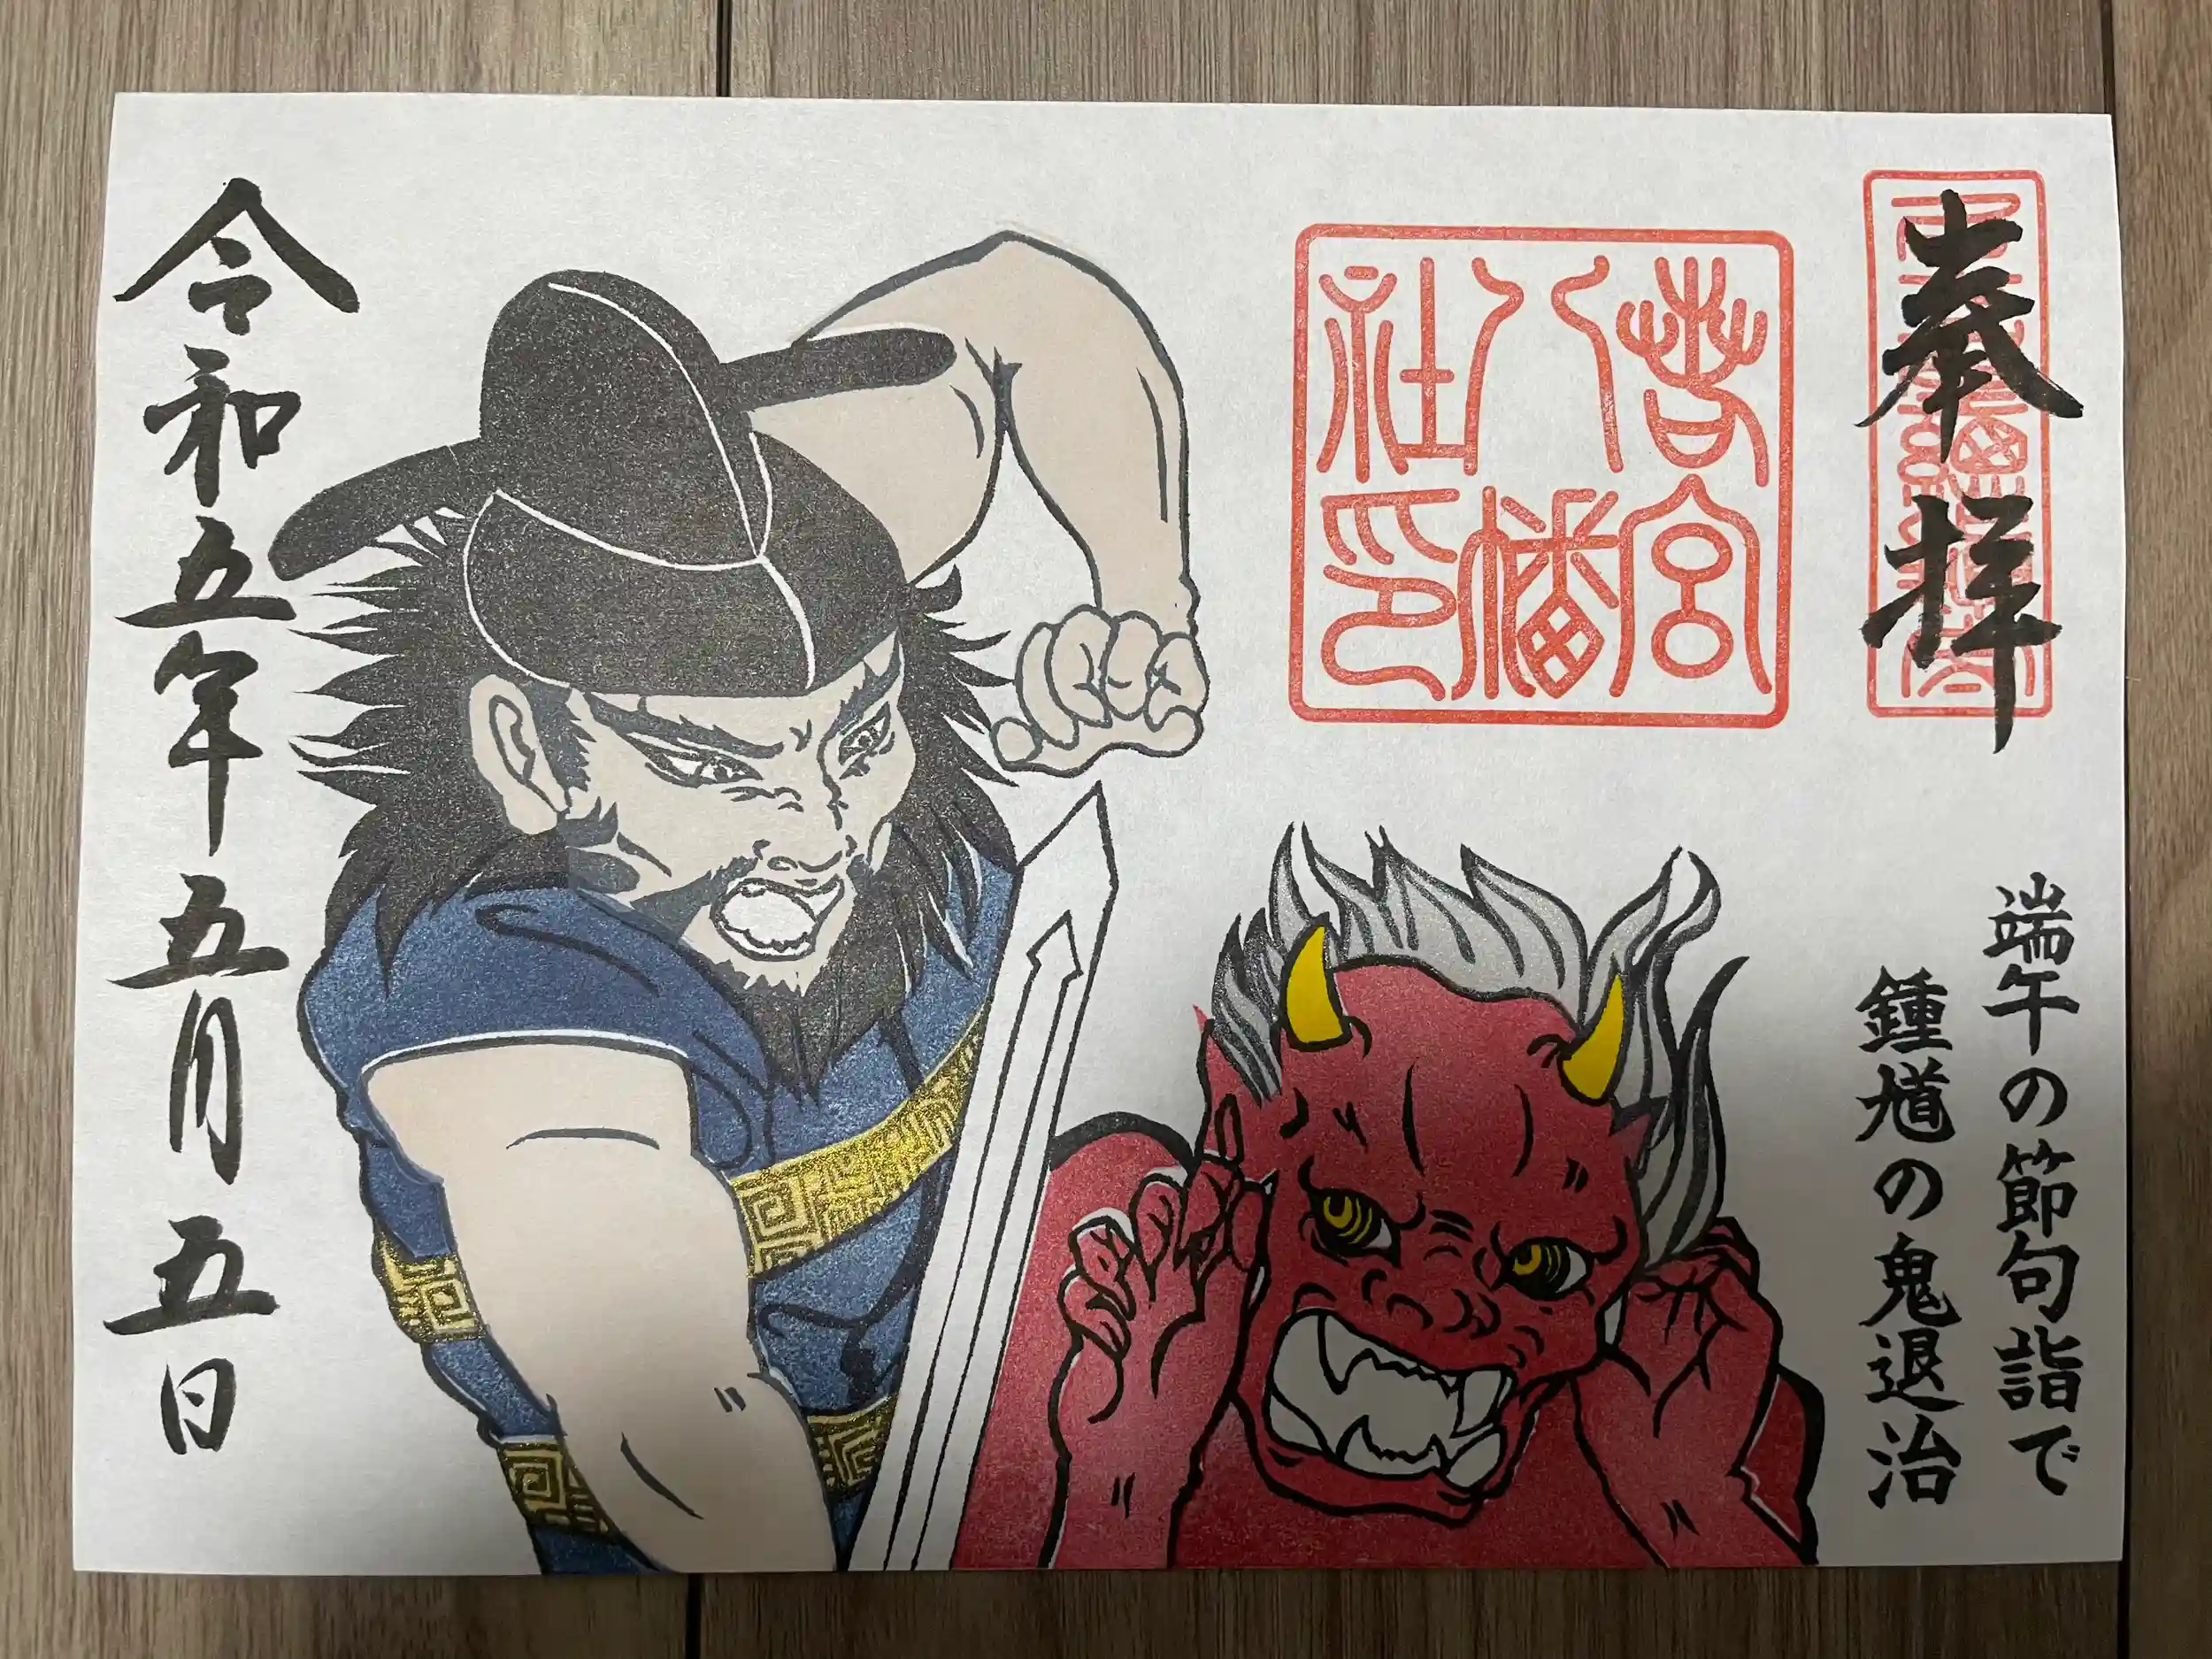 奉拝
端午の節句詣で
鍾馗の鬼退治
若宮
八幡
社印
令和五年五月五日